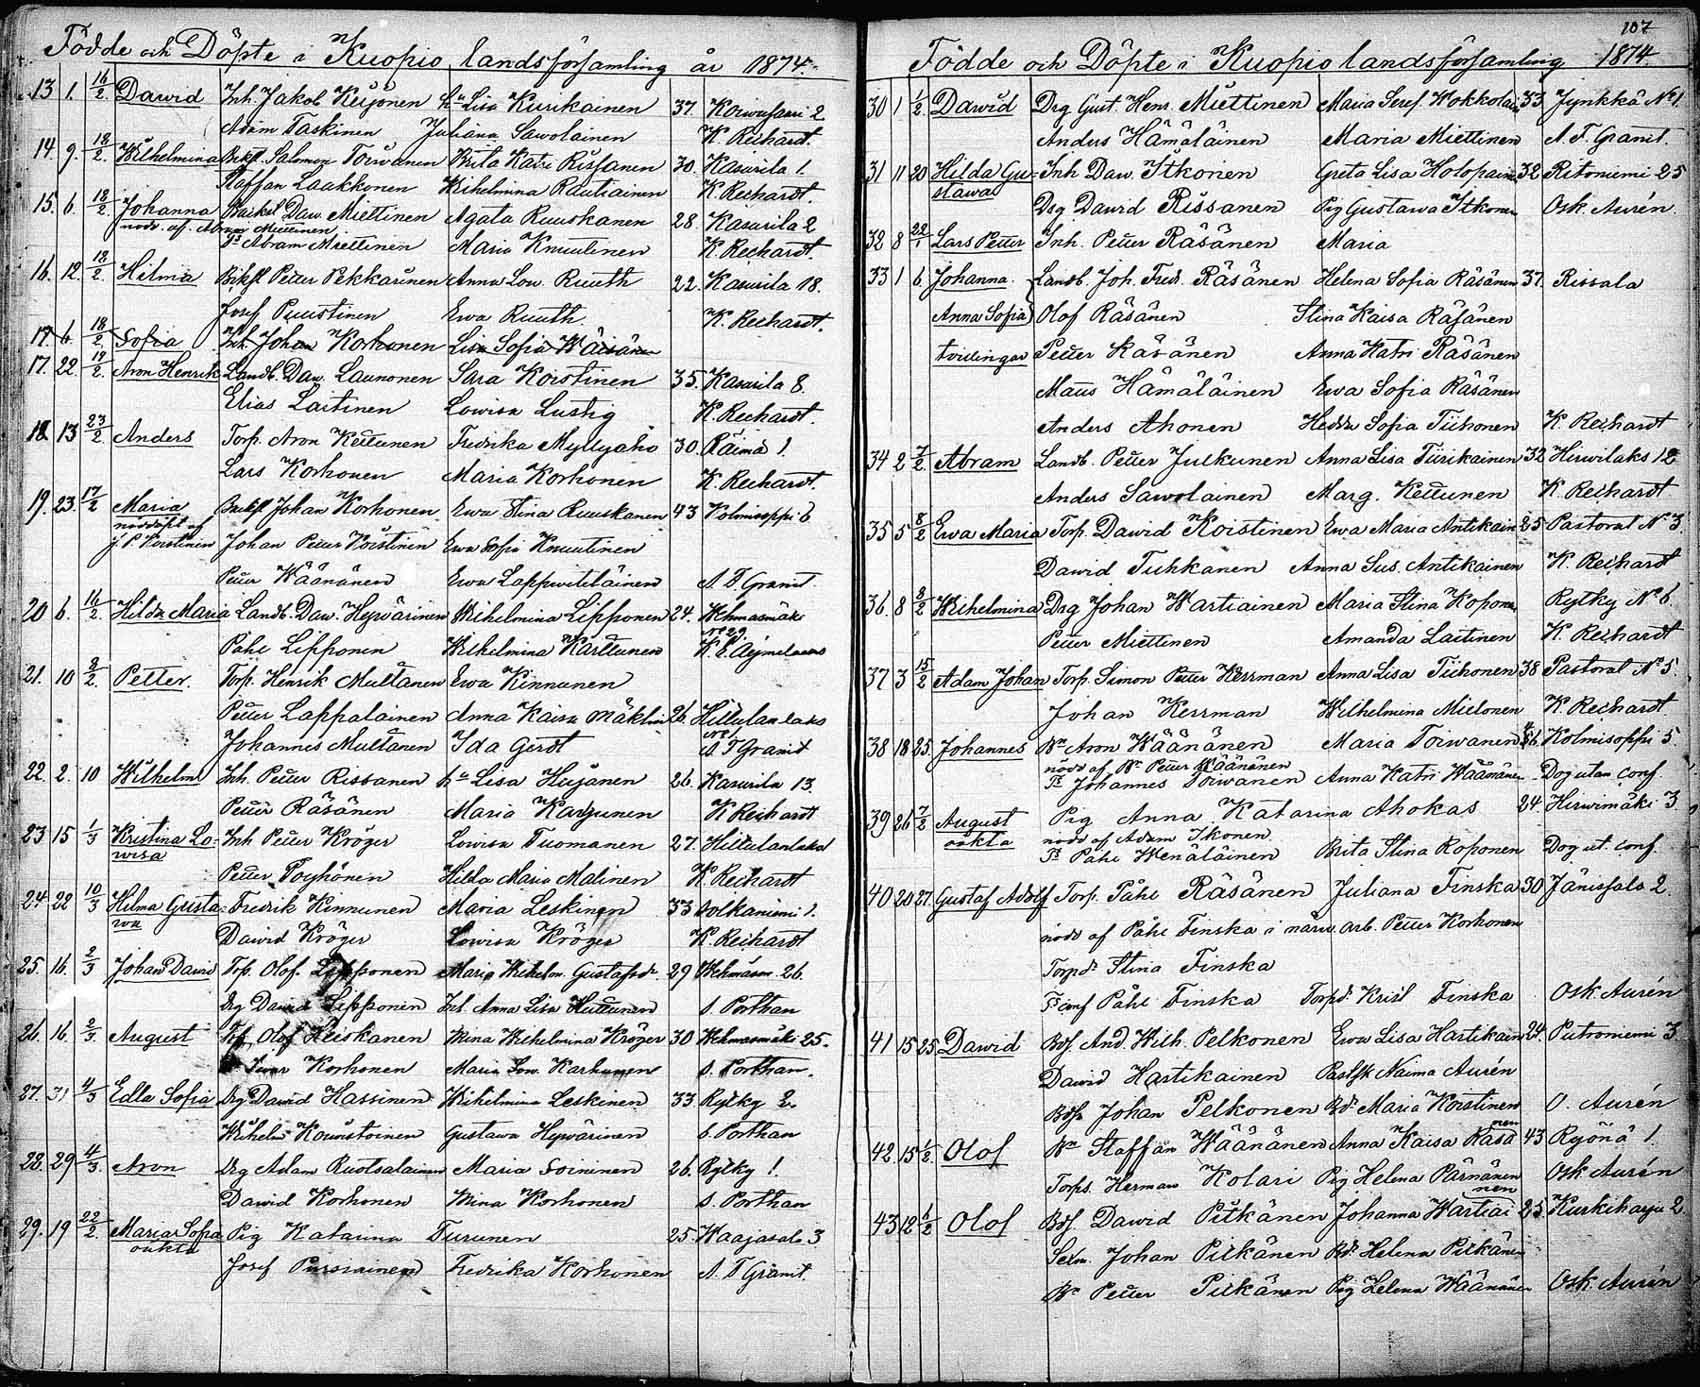 Födde och Döpte i Kuopio landsförsamling år 1874.
13. 1. 16/2. Dawid Inh. Jakob Keijonen h:u Lisa Kurikainen 37. Korwusaari 2
Adam Taskinen Juliana Sawolainen K. Rechardt.
14. 9. 18/2. Wilhelmina Bekfl. Salomon Toiwanen Brita Katri Rissanen 30. Kasurila 1.
Staffan Laakkonen Wilhelmina Rautiainen K. Rechardt.
15. 6. 18/2 Johanna Backst. Daw. Miettinen Agata Ruuskanen 28. Kasurila 2
nöds. af. Abram Miettinen
Ts Abram Miettinen Maria Knuutinen K. Rechardt.
16. 12. 18/2. Hilma Bekfl Petter Pekkarinen Anna Lov. Ruuth 22. Kasurila 18.
Josef Puustinen Ewa Ruuth. K. Rechardt.
17. 6. 18/2. Sofia Inh. Johan Korhonen Lisa Sofia Wäisänen
17. 22. 19/2. Aron Henrik Landb. Daw. Launonen Sara Koistinen 35. Kasurila 8.
Elias Laitinen Lowisa Lustig K. Rechardt.
18. 13 23/2 Anders Torp. Aron Kettunen Fredrika Myllyaho 30. Räimä 1.
Lars Korhonen Maria Korhonen K. Rechardt.
19. 23. 17/2 Maria Bekfl Johan Korhonen Ewa Stina Ruuskanen 43 Kolmisoppi 6
nöddöpt af
J. P. Koistinen Johan Petter Koistinen Ewa Sofia Knuutinen
Petter Wäänänen Ewa Lappweteläinen A. F. Granit.
20 6. 16/2. Hilda Maria Landb. Daw. Heywärinen Wilhelmina Lipponen 24. Wehmasmäki
No 29
Påhl Lipponen Wilhelmina Karttunen K. E. Aejmelaeus
21. 10 2/2. Petter. Torp. Henrik Multanen Ewa Kinnunen
Petter Lappalainen Anna Kaisa Mäklin 26. Hiltulanlaks
No 1
Johannes Multanen Ida Gerdt A F Granit
22. 2. 10 Wilhelm Inh. Petter Rissanen h:u Lisa Heijanen 26. Kasurila 13.
Petter Räsänen Maria Kargunen K Rechardt
23 15 1/3 Kristina Lo- Inh Petter Kröger Lowisa Tuomanen 27. Hiltulanlaks
wisa
Petter Pöyhönen Hilda Maria Malinen K Rechardt
24. 22 10/3 Hilma Gusta- Fredrik Kinnunen Maria Leskinen 33 Wolkaniemi 1.
wa
Dawid Kröger Lowisa Kröger K. Rechardt
25. 16. 2/3 Johan Dawid Top. Olof Lipponen Maria Wilhelm. Gustafsdr 29 Wehmasm. 26.
Drg David Lipponen Inh. Anna Lisa Huttunen O. Porthan
26. 16. 2/3. August Tof. Olof Heiskanen Mina Wilhelmina Kröger 30 Wehmasmäki 25.
Korhonen Maria Low. Karhunen O. Porthan.
27. 31 4/3 Edla Sofia Drg David Hassinen Wilhelmina Leskinen 33 Rytky 2.
Wilhelm Kouwstoinen Gustawa Heywärinen O. Porthan
28. 29 4/3. Aron Drg Adam Ruotsalainen Maria Soininen 26. Rytky 1.
Dawid Korhonen Mina Korhonen O. Porthan
29. 19 22/2. Maria Sofia Pig Katarina Turunen 25. Kaajasalo 3
oäkta
Josef Fredrika Korhonen A. F Granit.
107
Födde och Döpte i Kuopio landsförsamling 1874.
30 1 1/2 Dawid Drg Gust. Hens. Miettinen Maria Seref. Wokkolain 33 Jynkkä No 1.
Anders Hämäläinen Maria Miettinen A. F. Granit.
31 11 20 Hilda Gu- Inh Daw. Itkonen Greta Lisa Holopain 32 Ritoniemi 25
stawa
Drg Dawid Rissanen Pig Gustawa Itkonen Osk. Aurén.
32 8 22/1 Lars Petter Inh. Petter Räsänen Maria
33 1 6. Johanna. Landb. Joh. Fred. Räsänen Helena Sofia Räsänen 37. Rissala
Anna Sofia Olof Räsänen Stina Kaisa Räsänen
tvillingar Petter Räsänen Anna Katri Räsänen
Mats Hämäläinen Ewa Sofia Räsänen
Anders Ahonen Hedda Sofia Tiihonen K. Rechardt
34 2 7/2 Abram Landb. Petter Julkunen Anna Lisa Tiirikainen 32 Hirwilaks 12
Anders Sawolainen Marg. Kettunen K. Rechardt
35 5 8/2 Ewa Maria Torp. Dawid Koistinen Ewa Maria Antikain 25 Pastorat No 3
Dawid Tuhkanen Anna Sus. Antikainen K. Rechardt
36. 8 8/2 Wilhelmina Drg Johan Wartiainen Maria Stina Koponen Rytky No 6
Petter Miettinen Amanda Laitinen K. Rechardt
37 3 15/2 Adam Johan Torp. Simon Petter Herrman Anna Lisa Tiihonen 38 Pastorat No 5.
Johan Herrman Wilhelmina Mielonen K. Rechardt
38 18 25. Johannes Bn Aron Wäänänen Maria Toiwanen 26. Kolmisoppi 5.
nöds af Bn Petter Wäänänen
Ts Johannes Toiwanen Anna Katri Wäänänen Dog utan conf.
39 26 7/2 August Pig Anna Katarina Ahokas 24. Hirwimäki 3
oäkta nöds af Adam Ikonen
Ts Påhl Wenäläinen Brita Stina Koponen Dog ut. conf.
40 20 27. Gustaf Adolf Torp. Påhl Räsänen Juliana Finska 30 Jänissalo 2.
nöds af Påhl Finska i närw. arb. Petter Korhonen
Torpdr Stina Finska
Ts conf Påhl Finska Torpdr. Krist Finska Osk Aurén
41 15 25. Dawid Bds. And. Wilh. Pelkonen Ewa Lisa Hartikain 24. Putroniemi 3
Dawid Hartikainen Pastfsk Naima Aurén
Bdsn Johan Pelkonen Bdr Maria Koistinen O. Aurén
42. 15 1/2. Olof Bn Staffan Wäänänen Anna Kaisa Räsänen 43 Ryönä 1.
Torps. Herman Kolari Pig Helena Pärnänen Osk Aurén
43 12 6/2 Olof Bds. Dawid Pitkänen Johanna Wartiainen 25. Kurkiharju 2.
Johan Pitkänen Bdr Helena Pitkänen
Bn Petter Pitkänen Pig Helena Wäänänen Osk. Aurén